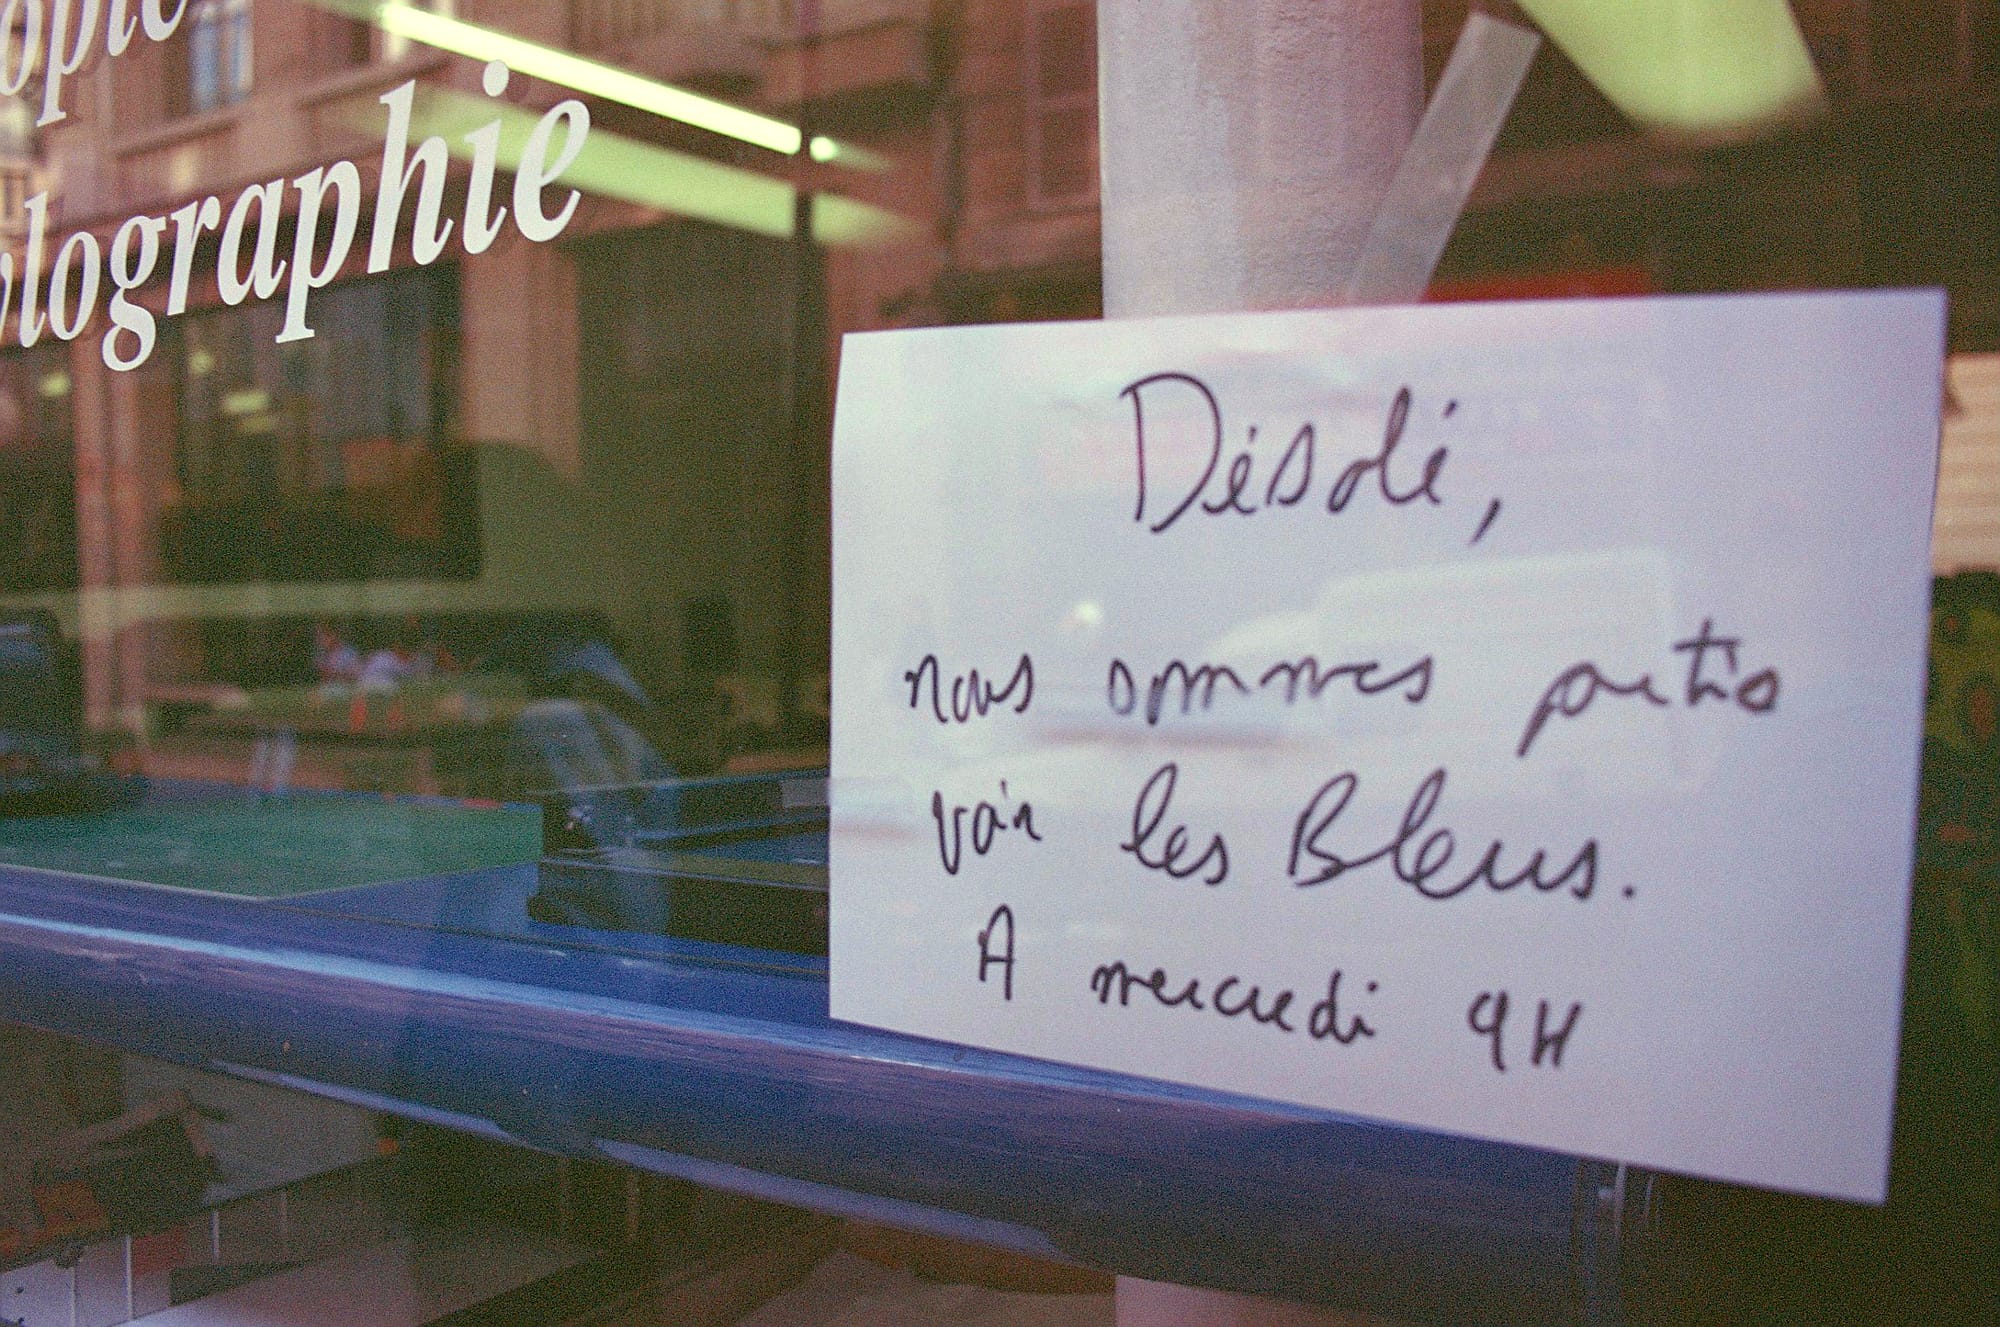 opie
ylographie
Désolé,
nous sommes partis
voir les Bleus.
A mercredi 9H